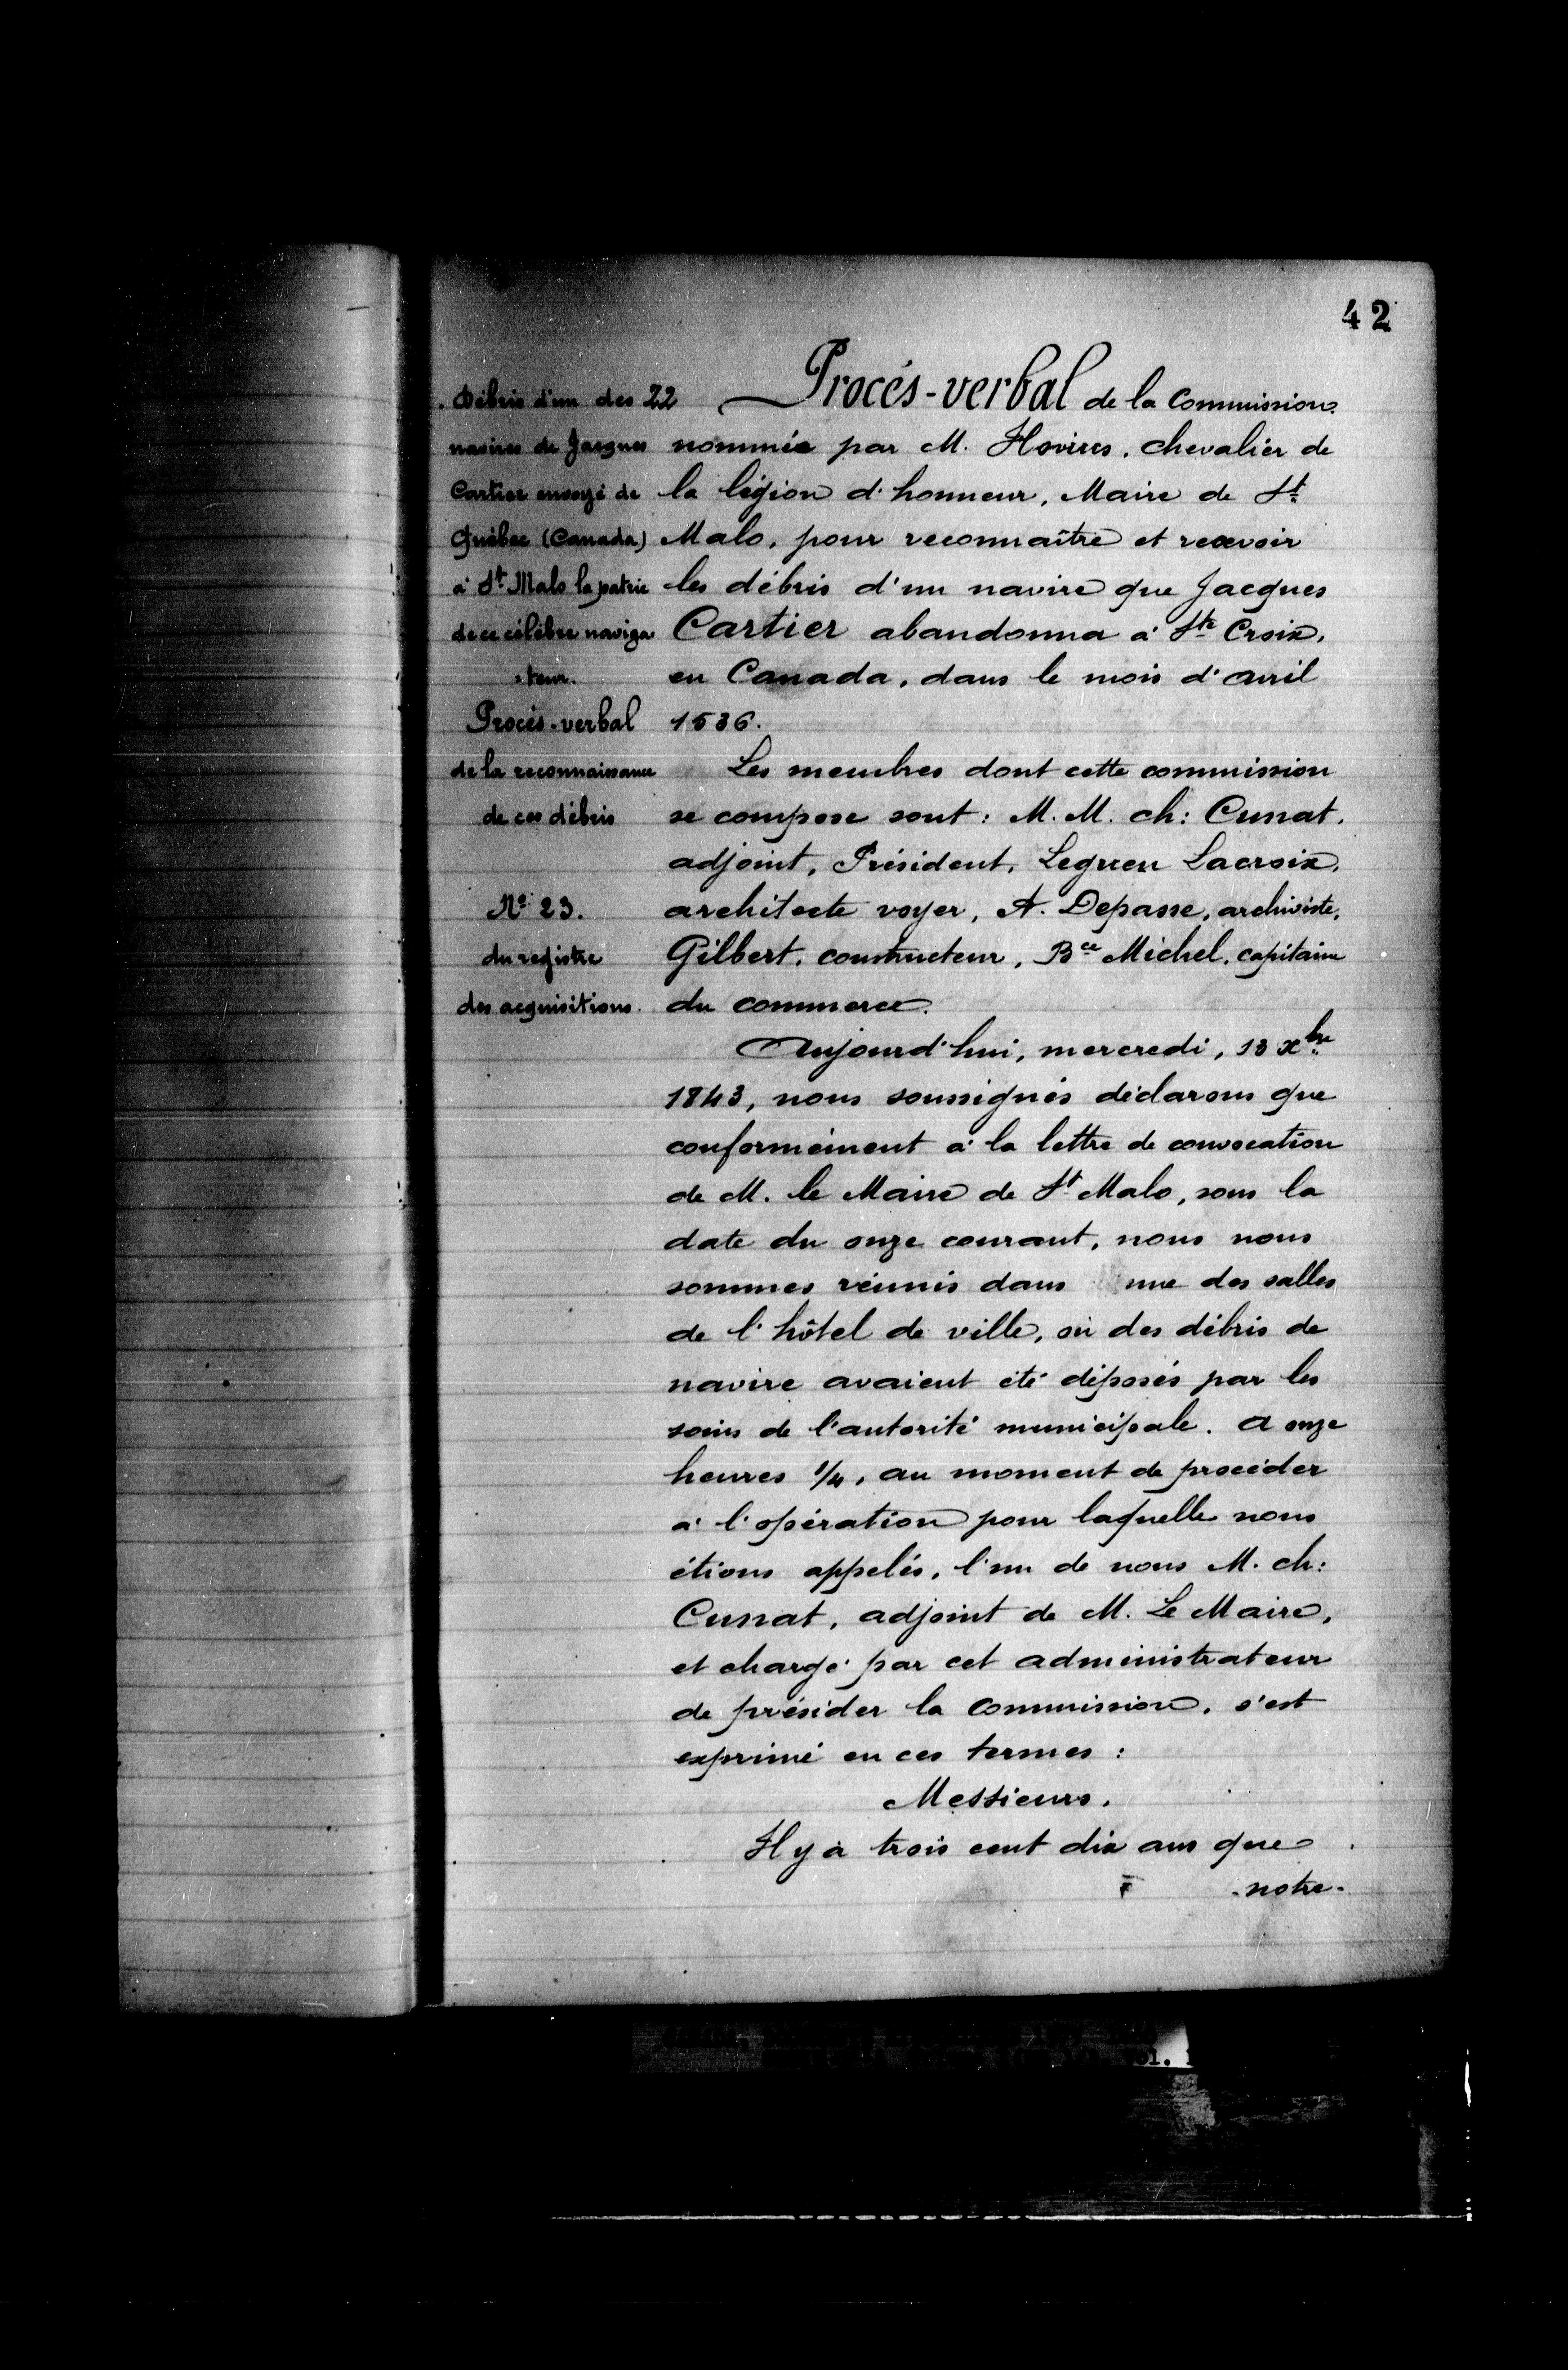 42
Débris d'un des 22
navires de Jacques
Cartier envoyé de
Québec (Canada)
à St Malo la patrie
de ce célèbre naviga
-teur.
Procés-verbal
de la reconnaissance
de ces débris
No 23.
du registre
des acquisitions.
Procés-verbal de la Commission
nommée par M. Hovius, chevalier de
la légion d'honneur, Maire de St
Malo, pour reconnaître et recevoir
les débris d'un navire que Jacques
Cartier abandonna à Ste Croix,
en Canada, dans le mois d'avril
1536.
Les membres dont cette commission
se compose sont : M. M. ch: Cunat,
adjoint, Président, Leguen Lacroix,
architecte voyer, A. Depasse, archiviste,
Gilbert, constructeur, Bce Michel, capitaine
du commerce.
Aujourd'hui, mercredi, 13 Xbre
1843, nous soussignés déclarons que
conformément à la lettre de convocation
de M. le Maire de St Malo, sous la
date du onze courant, nous nous
sommes réunis dans une des salles
de l'hôtel de ville, où des débris de
navire avaient été déposés par les
soins de l'autorité municipale. A onze
heures 1/4, au moment de procéder
à l'opération pour laquelle nous
étions appelés, l'un de nous M. ch:
Cunat, adjoint de M. Le Maire,
et chargé par cet administrateur
de présider la commission, s'est
exprimé en ces termes :
Messieurs,
Il y a trois cent dix ans que
-notre-